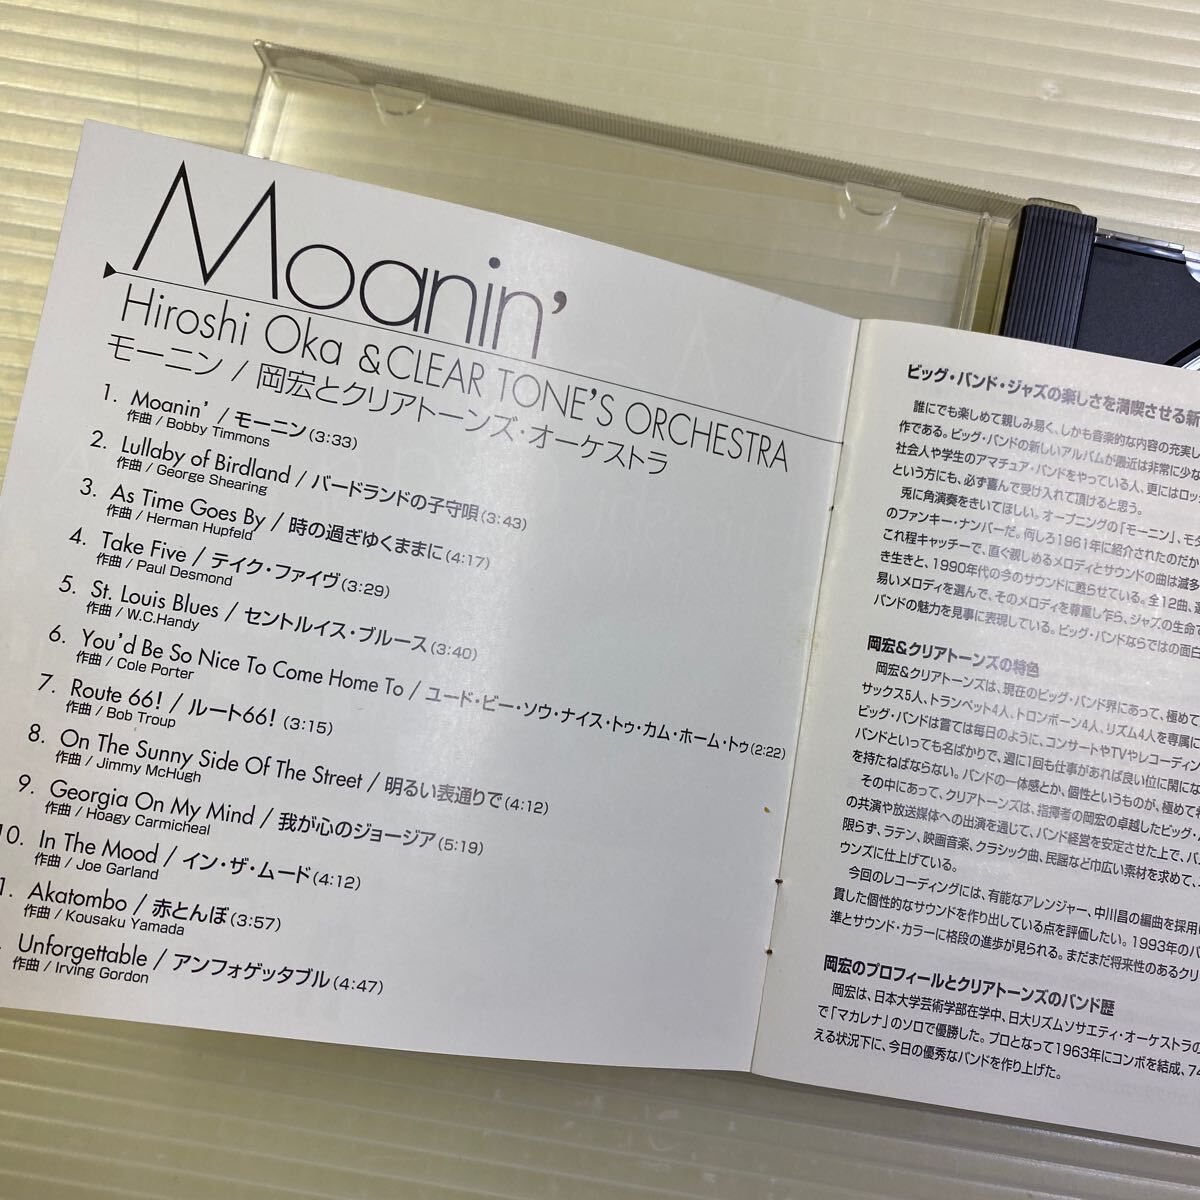 Moanin'
Hiroshi Oka & CLEAR TONE'S ORCHESTRA
モーニン / 岡宏とクリアトーンズ・オーケストラ
1. Moanin' / モーニン(3:33)
作曲 / Bobby Timmons
2. Lullaby of Birdland / バードランドの子守唄(3:43)
作曲 / George Shearing
3. As Time Goes By / 時の過ぎゆくままに(4:17)
作曲 / Herman Hupfeld
4. Take Five / テイク・ファイヴ(3:29)
作曲 / Paul Desmond
5. St. Louis Blues / セントルイス・ブルース(3:40)
作曲 / W.C.Handy
6. You'd Be So Nice To Come Home To / ユード・ビー・ソウ・ナイス・トゥ・カム・ホーム・トゥ(2:22)
作曲 / Cole Porter
7. Route 66! / ルート66! (3:15)
作曲 / Bob Troup
8. On The Sunny Side Of The Street / 明るい表通りで(4:12)
作曲 / Jimmy McHugh
9. Georgia On My Mind / 我が心のジョージア(5:19)
作曲 / Hoagy Carmicheal
10. In The Mood / イン・ザ・ムード(4:12)
作曲 / Joe Garland
1. Akatombo / 赤とんぼ(3:57)
作曲 / Kousaku Yamada
. Unforgettable / アンフォゲッタブル(4:47)
作曲 / Irving Gordon
ビッグ・バンド・ジャズの楽しさを満喫させる新
誰にでも楽しめて親しみ易く、しかも音楽的な内容の充実し
作である。ビッグ・バンドの新しいアルバムが最近は非常に少な
社会人や学生のアマチュア・バンドをやっている人、更にはロッ
という方にも、必ず喜んで受け入れて頂けると思う。
兎に角演奏をきいてほしい。オープニングの「モーニン」、モダ
のファンキー・ナンバーだ。何しろ1961年に紹介されたのだか
これ程キャッチーで、直ぐ親しめるメロディとサウンドの曲は滅多
き生きと、1990年代の今のサウンドに甦らせている。全12曲、選
易いメロディを選んで、そのメロディを尊重し乍ら、ジャズの生命で
バンドの魅力を見事に表現している。ビッグ・バンドならではの面白
岡宏&クリアトーンズの特色
岡宏&クリアトーンズは、現在のビッグ・バンド界にあって、極めて
サックス5人、トランペット4人、トロンボーン4人、リズム4人を専属に
ビッグ・バンドは嘗ては毎日のように、コンサートやTVやレコーディン
バンドといっても名ばかりで、週に1回も仕事があれば良い位に閑にな
を持たねばならない。バンドの一体感とか、個性というものが、極めて
その中にあって、クリアトーンズは、指揮者の岡宏の卓越したビッグ・
の共演や放送媒体への出演を通じて、バンド経営を安定させた上で、バ
限らず、ラテン、映画音楽、クラシック曲、民謡など巾広い素材を求めて、
ウンズに仕上げている。
今回のレコーディングには、有能なアレンジャー、中川昌の編曲を採用
貫した個性的なサウンドを作り出している点を評価したい。1993年のバ
準とサウンド・カラーに格段の進歩が見られる。まだまだ将来性のあるクリ
岡宏のプロフィールとクリアトーンズのバンド歴
岡宏は、日本大学芸術学部在学中、日大リズムソサエティ・オーケストラの
で「マカレナ」のソロで優勝した。プロとなって1963年にコンボを結成、74
える状況下に、今日の優秀なバンドを作り上げた。